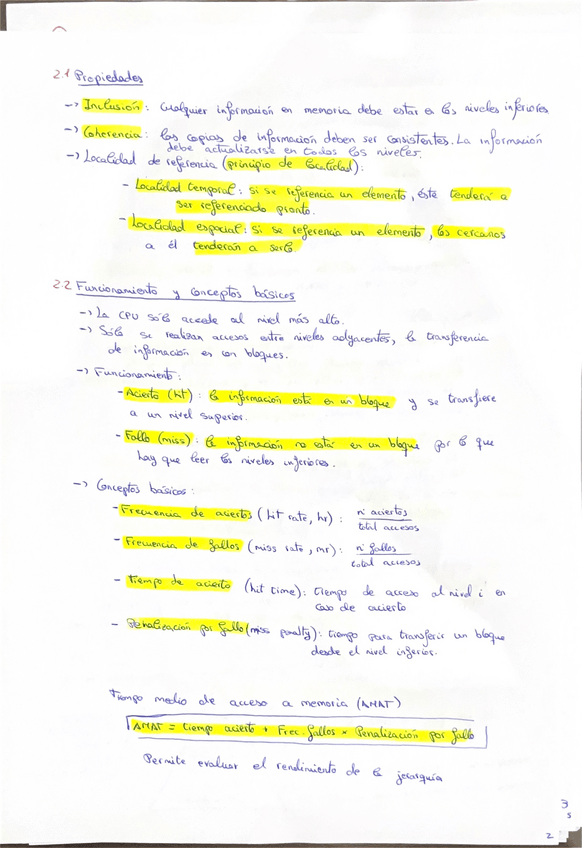 2.1 Propiedades
-> Inclusión: Cualquier información en memoria debe estar en los niveles inferiores
-> Coherencia: las copias de información deben ser consistentes. La información
debe actualizarse en todos los niveles.
-> Localidad de referencia (principio de localidad):
- Localidad temporal: si se referencia un elemento, éste tenderá a
ser referenciado pronto.
- Localidad espacial: si se referencia un elemento, los cercanos
a él tenderán a serlo
2.2 Funcionamiento y conceptos básicos
-> La CPU sólo accede al nivel más alto.
-> Sólo se realizan accesos entre niveles adyacentes, la transferencia
de información es con bloques.
-> Funcionamiento:
- Acierto (hit): la información está en un bloque y se transfiere
a un nivel superior.
- Fallo (miss): la información no está en un bloque por lo que
hay que leer los niveles inferiores.
-> Conceptos básicos:
- Frecuencia de aciertos (hit rate, hr): nº aciertos
total accesos
- Frecuencia de fallos (miss rate, mr): nº fallos
total accesos
- Tiempo de acierto (hit time): tiempo de acceso al nivel i en
caso de acierto
- Penalización por fallo (miss penalty): tiempo para transferir un bloque
desde el nivel inferior.
Tiempo medio de acceso a memoria (AMAT)
AMAT = tiempo acierto + Frec. fallos × Penalización por fallo
Permite evaluar el rendimiento de la jerarquía
3
5
2